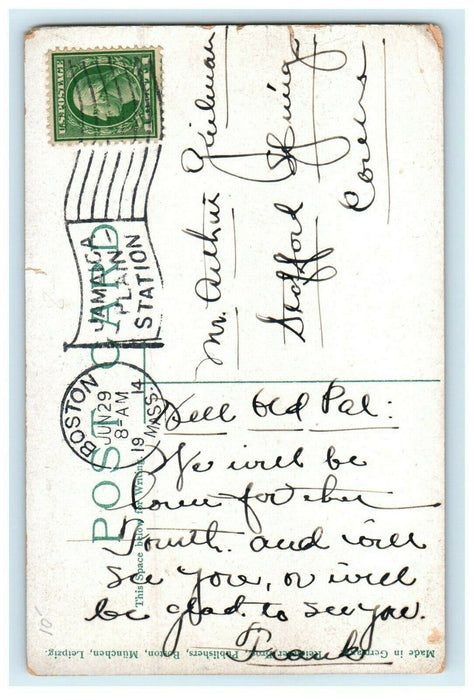 U.S. POSTAGE
JAMAICA
PLAIN
STATION
BOSTON
JUN 29
8-AM
1914
MASS.
POST CARD
This Space below for Writing
Mr. Arthur
Stafford Springs
Conn
Well Old Pal:
We will be
home for the
Fourth. and will
see you, or will
be glad to see you.
Frank
Made in Germany. Reichner Bros., Publishers, Boston, München, Leipzig.
10-